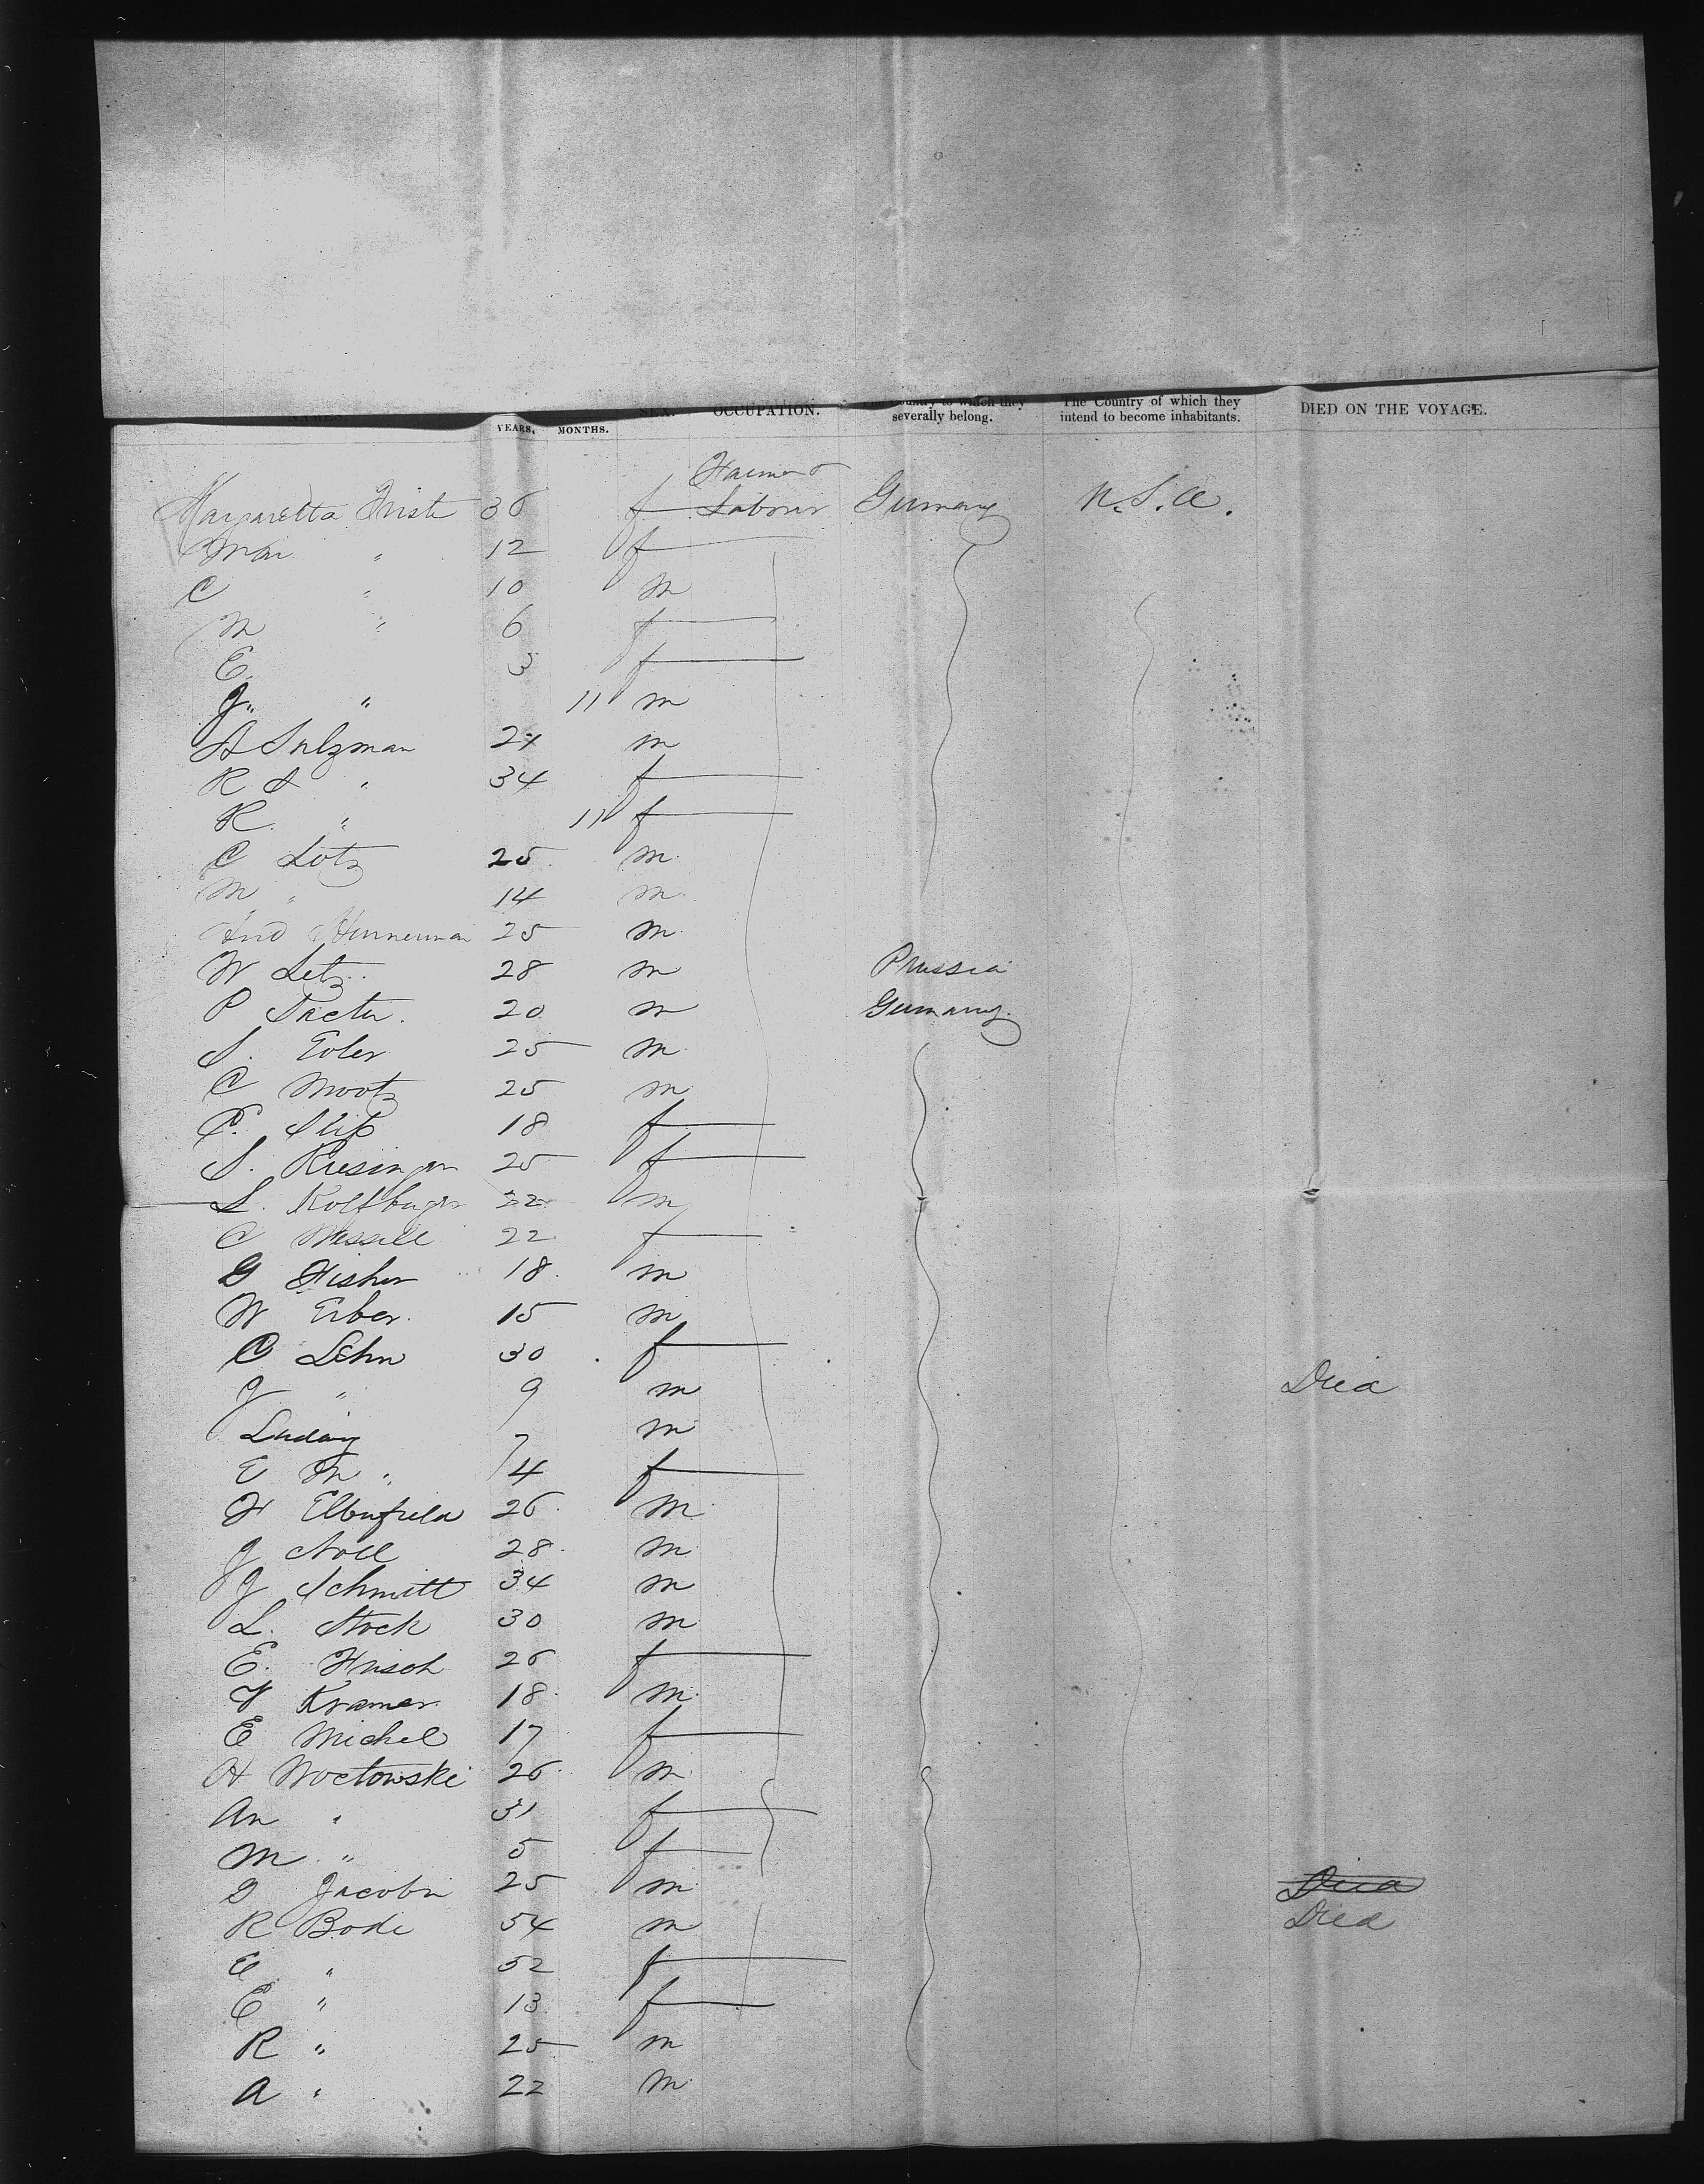 SEX. OCCUPATION. Country to which they severally belong. The Country of which they intend to become inhabitants. DIED ON THE VOYAGE.
YEARS. MONTHS.
Farmer &
Margaretta 36 f Labourer Germany U.S.A.
Mar " 12 f
C " 10 m
M " 6 f
E. 3 f
J " " 11 m
A Sulzman 24 m
R S " 34 f
R. " 11 f
C Lotz 25 m
M " 14 m
25 m
W Letz 28 m Prussia
P 20 m Germany
S. Euler 25 m
C Mootz 25 m
18 f
S. 25 f
L. 22 m
C Wessell 22 f
G Fisher 18 m
W Erber. 15 m
C Lehn 30 f
J " 9 m Died
Ludwig 7 m
E M " 4 f
F Elbenfield 26 m
J Noll 28 m
J Schmitt 34 m
L. Stock 30 m
E. Hirsch 26 f
V Kramer 18 m
E Michel 17 f
A Woctowski 26 m
An " 31 f
M " 5 f
G Jacobi 25 m Died
R Bode 54 m Died
E " 52 f
E " 13 f
R " 25 m
A " 22 m